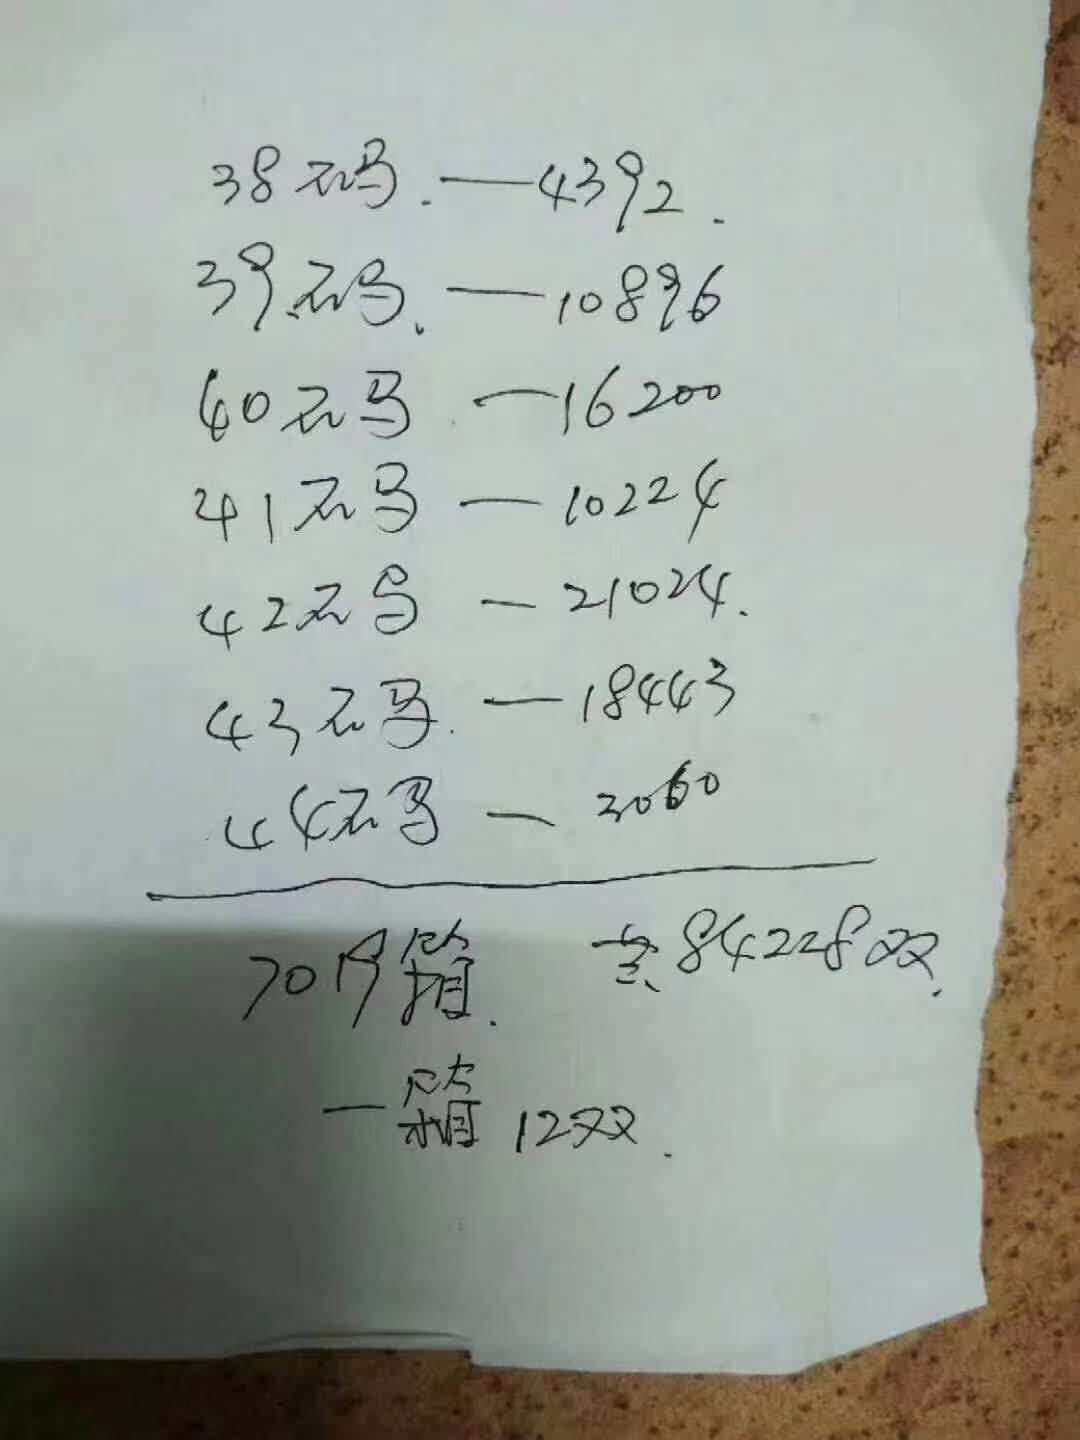 38码.—4392.
39码.—10896
40码—16200
41码—10224
42码—21024.
43码.—18443
44码—3060
7019箱. 共84228双.
一箱12双.